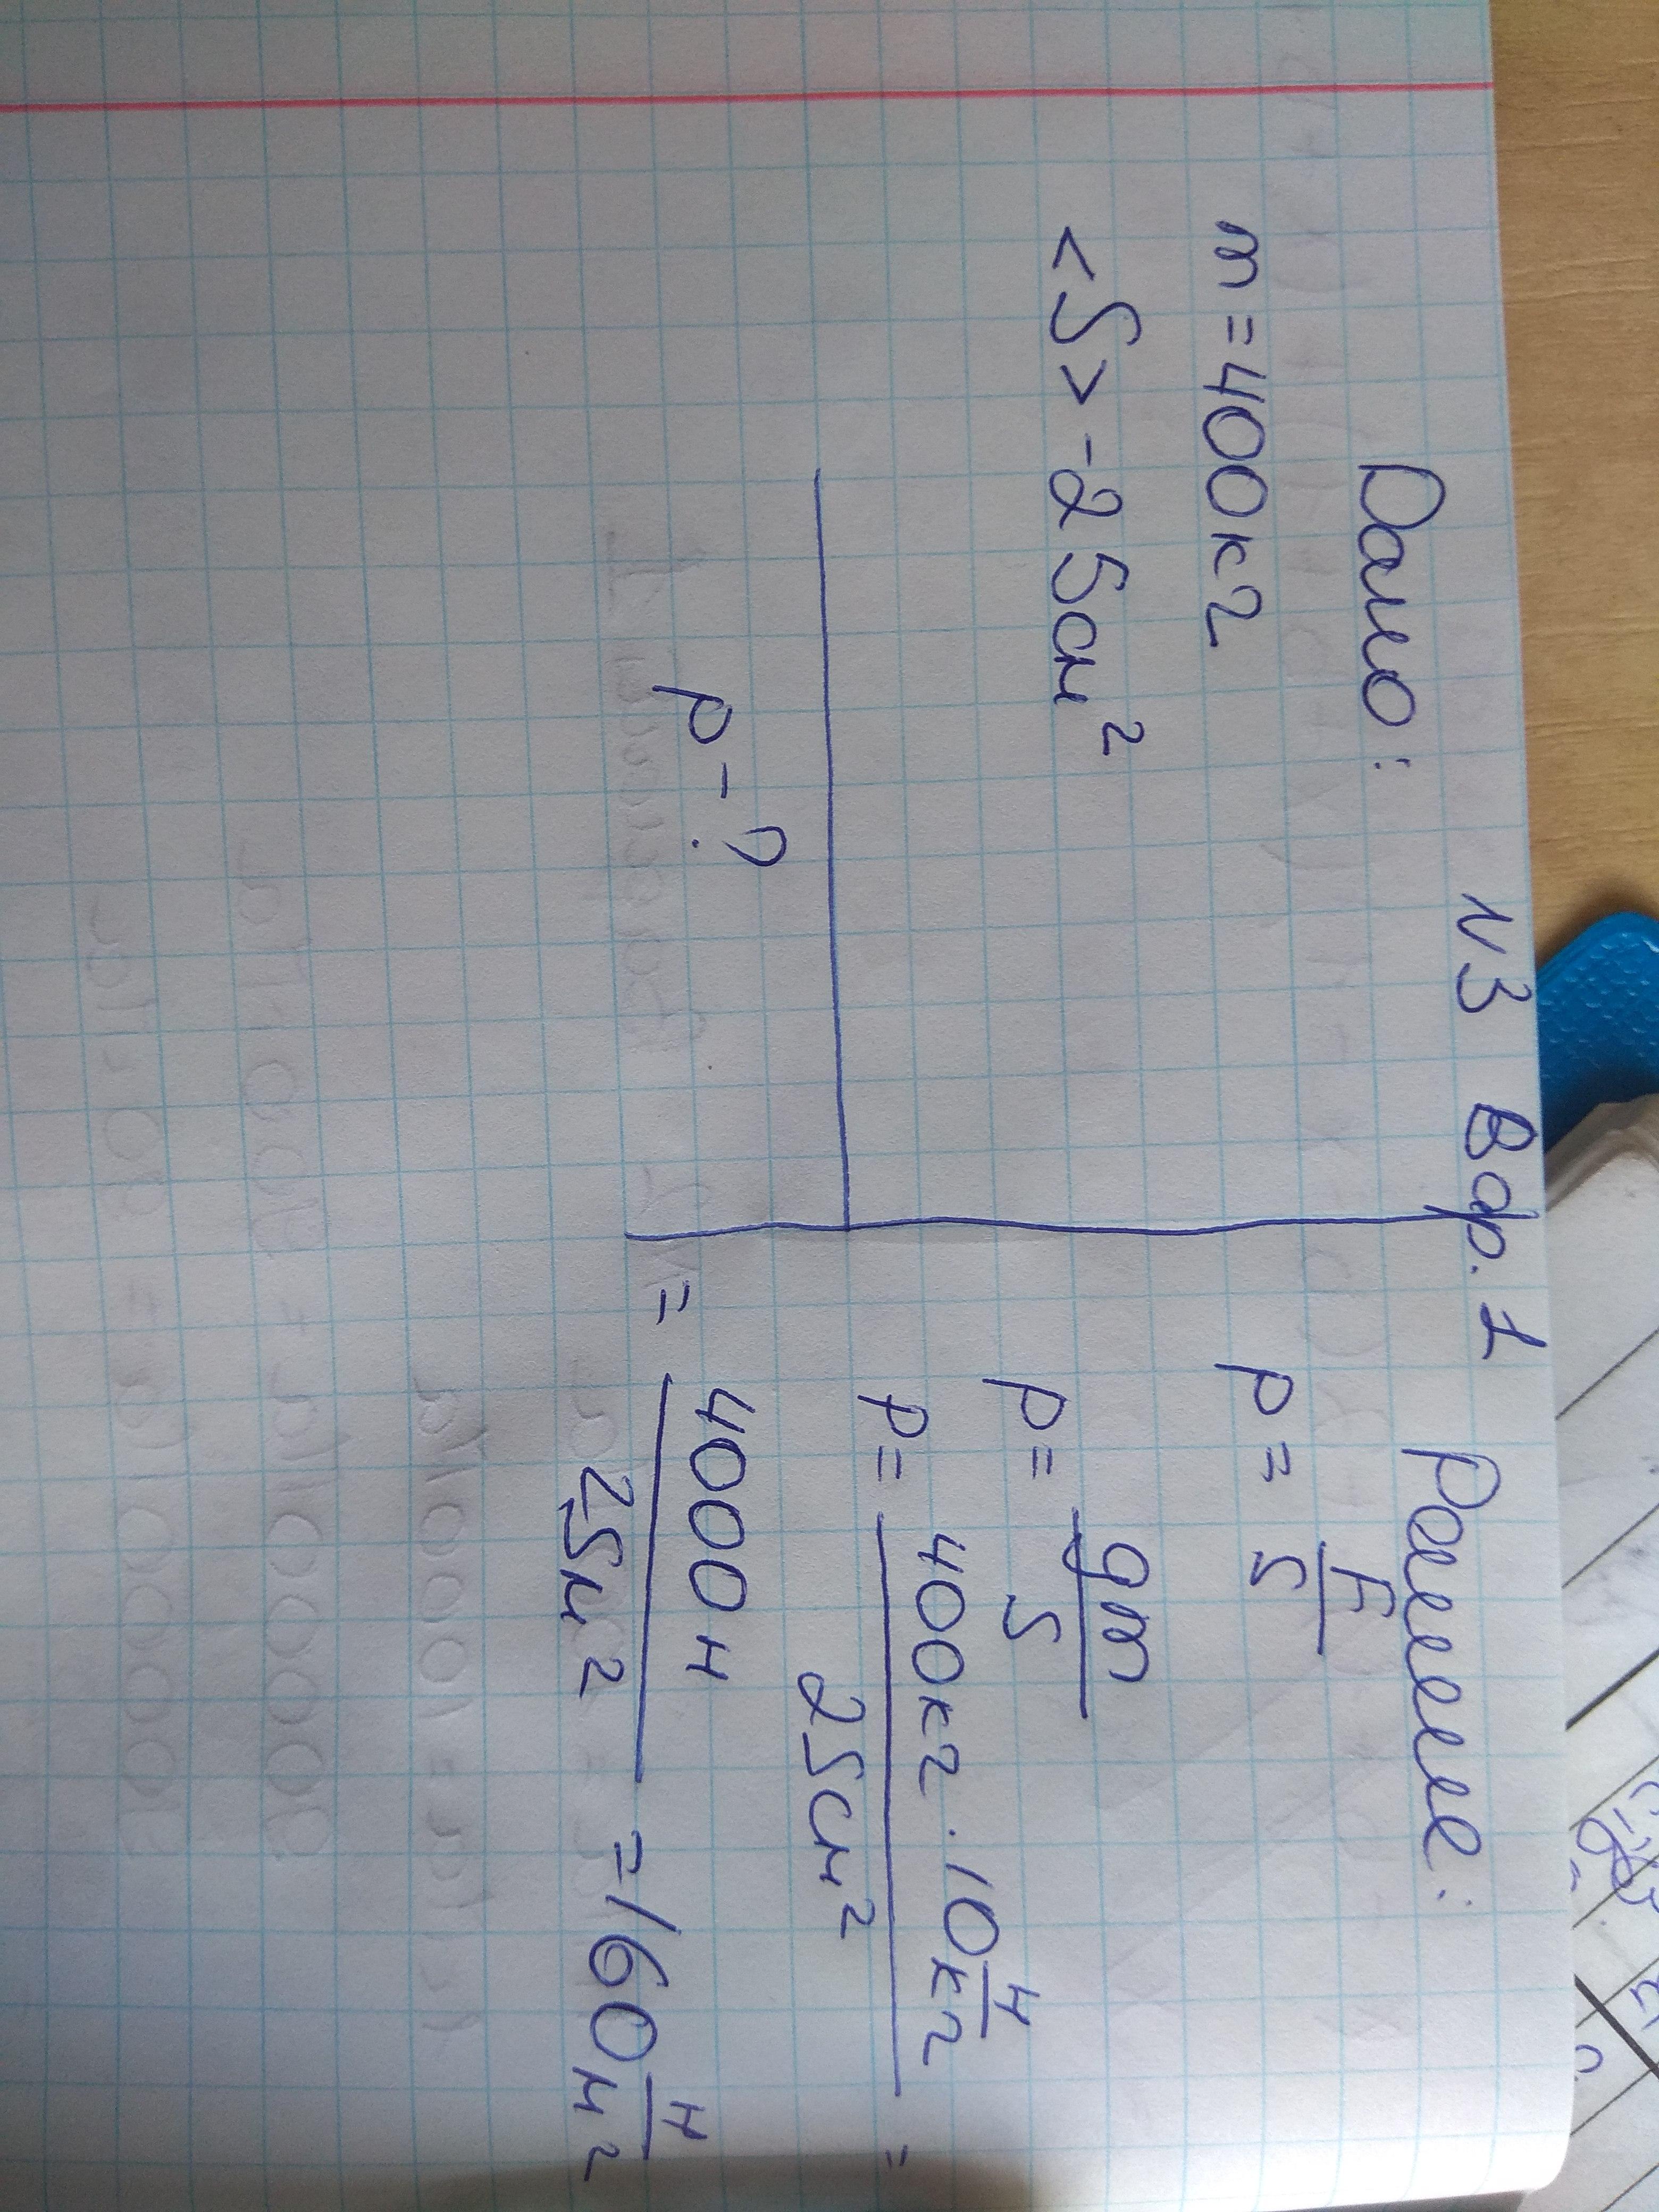 N3 Вар. 1
Дано:
m = 400кг
<S> - 25см²
p - ?
Решение:
p = F/S
p = gm/S
p = 400кг · 10 Н/кг / 25см² =
= 4000 Н / 25м² = 160 Н/м²